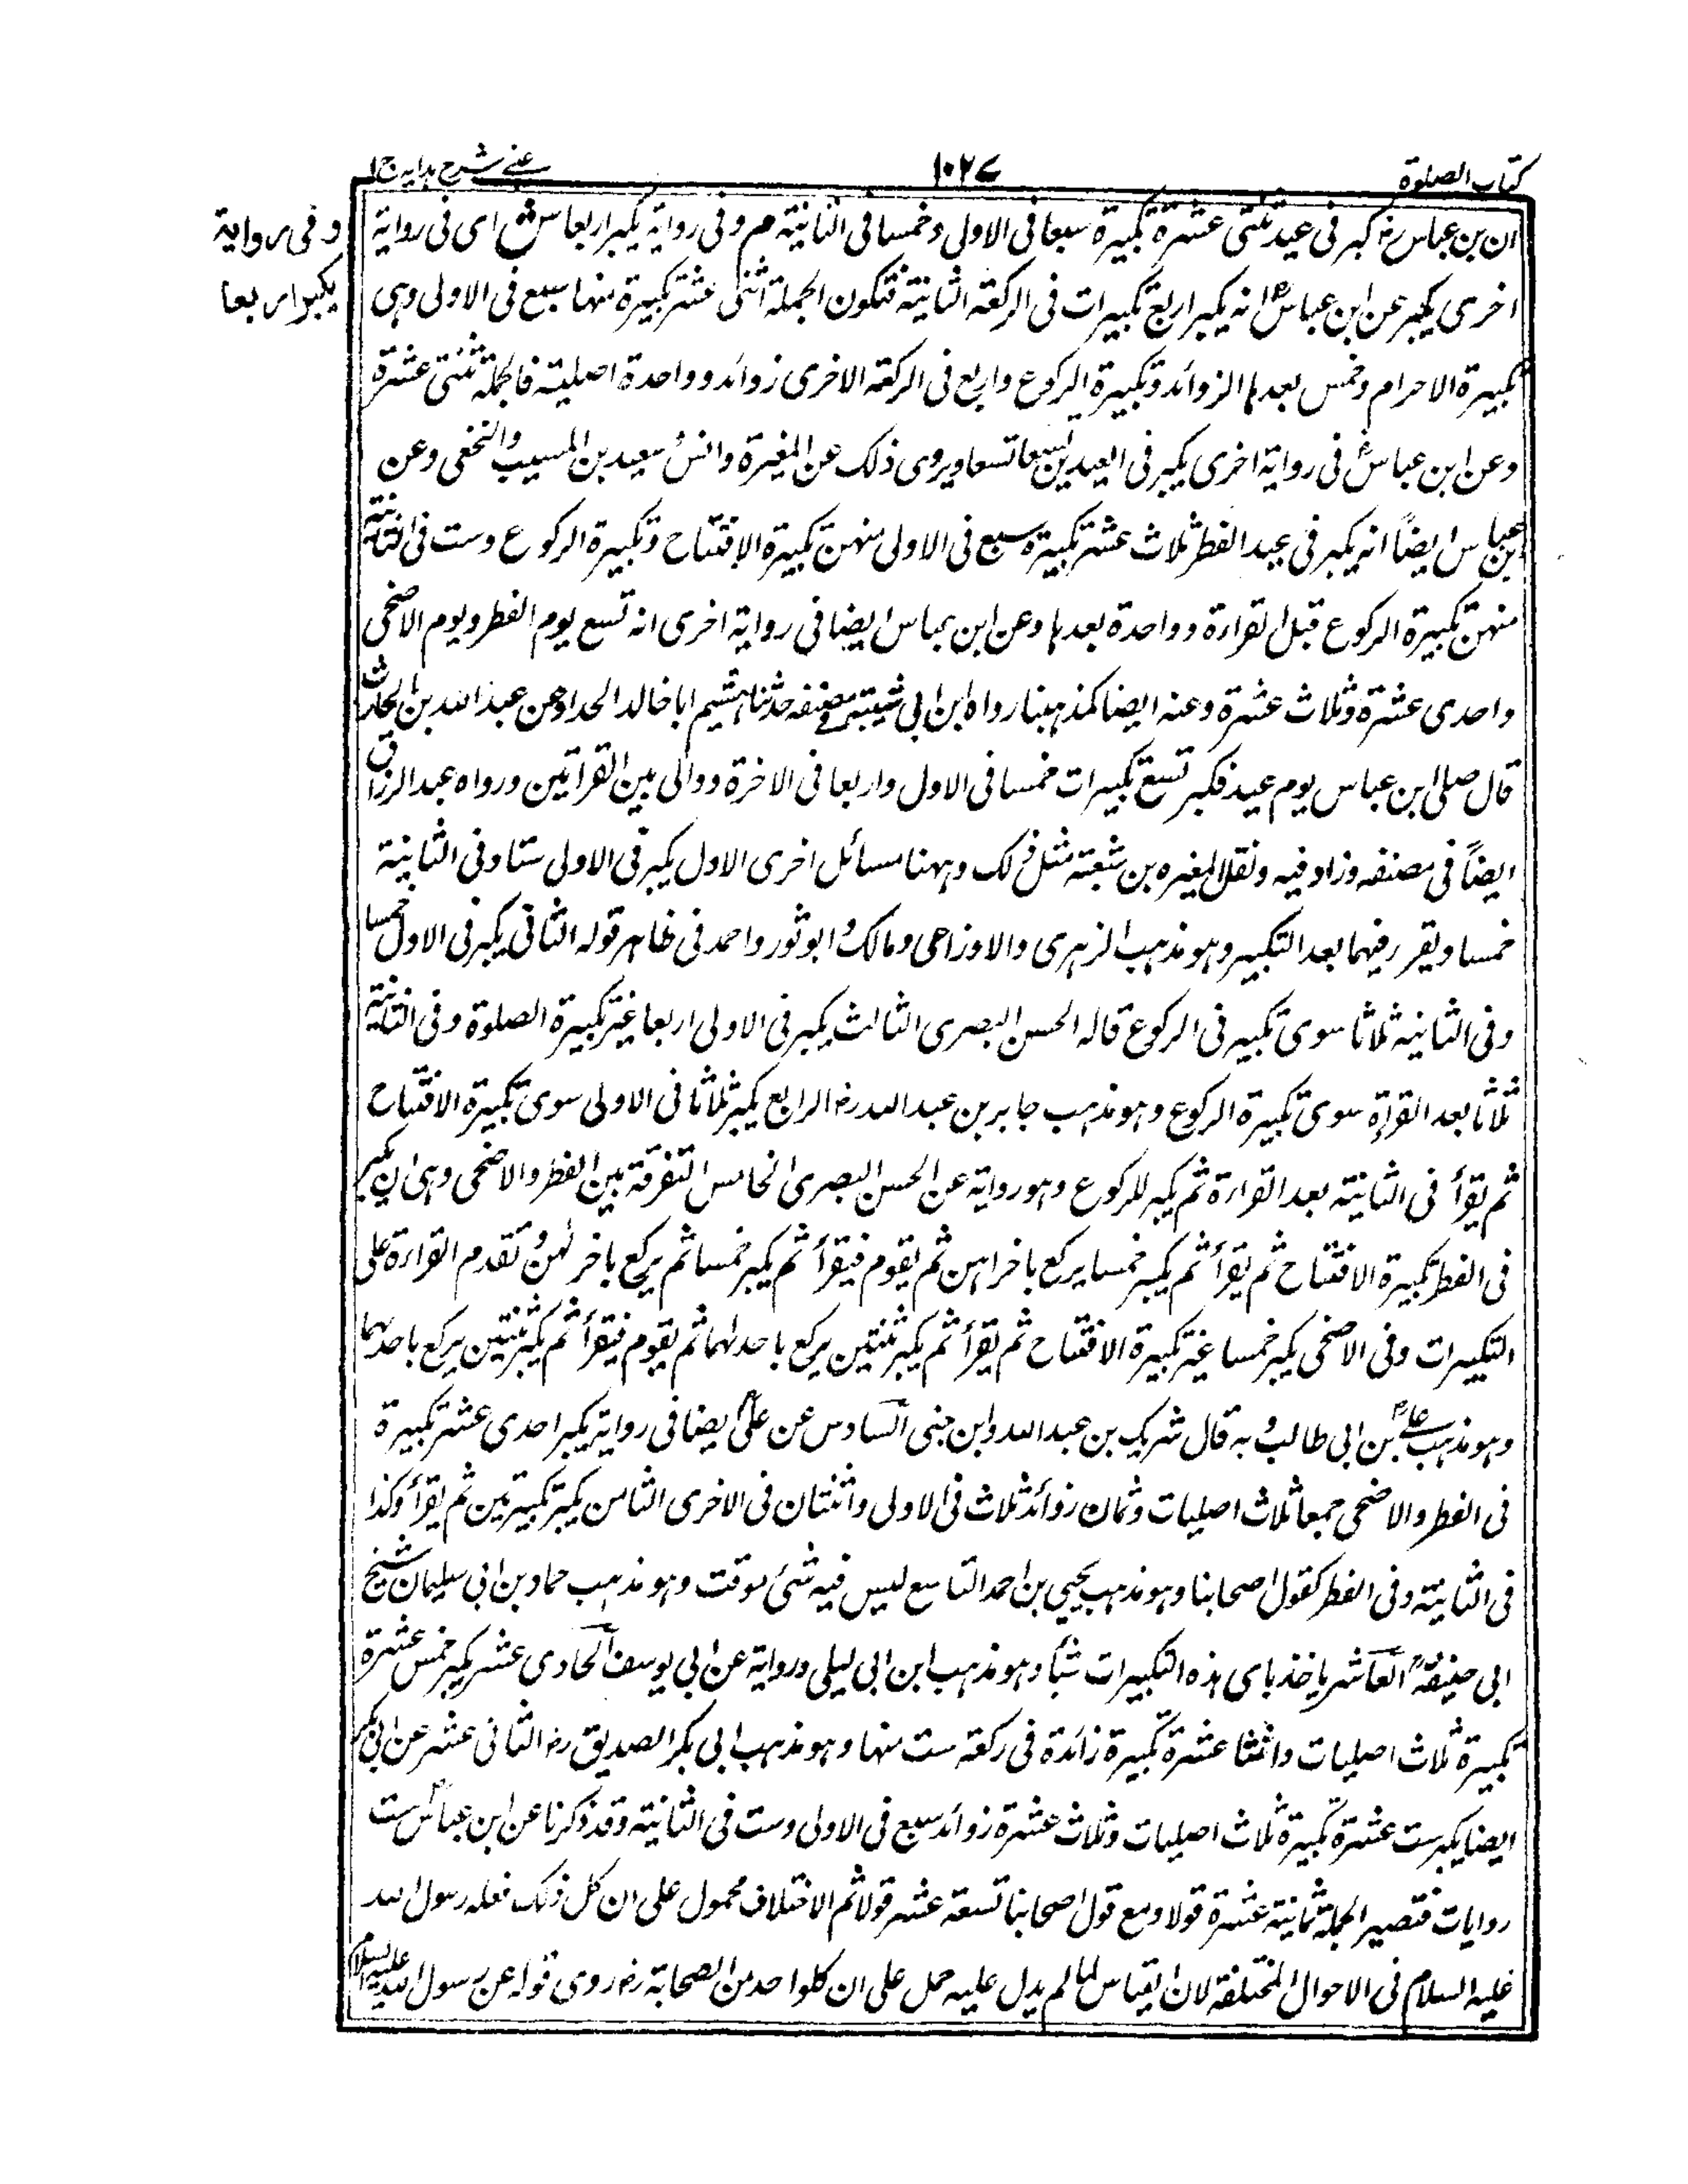 كتاب الصلوة
١٠٢٧
عيني شرح هدايه ج١
ان بن عباس رض كبر فى عيد ثنتى عشرة تكبيرة سبعا فى الاولى وخمسا فى الثانية م وفى رواية يكبر اربعا ش اى فى رواية
وفى رواية
يكبر اربعا
اخرى يكبر عن ابن عباس رض انه يكبر اربع تكبيرات فى الركعة الثانية فتكون الجملة اثنى عشر تكبيرة منها سبع فى الاولى وهى
تكبيرة الاحرام وخمس بعدها الزوائد وتكبيرة الركوع واربع فى الركعة الاخرى زوائد وواحدة اصلية فالجملة ثنتى عشرة
وعن ابن عباس رض فى رواية اخرى يكبر فى العيدين تسعا تسعا ويروى ذلك عن المغيرة وانس وسعيد بن المسيب والنخعى وعن
ابن عباس ايضاً انه يكبر فى عيد الفطر ثلاث عشر تكبيرة سبع فى الاولى منهن تكبيرة الافتتاح وتكبيرة الركوع وست فى الثانية
منهن تكبيرة الركوع قبل القراءة وواحدة بعدها وعن ابن عباس ايضا فى رواية اخرى انه تسع يوم الفطر ويوم الاضحى
واحدى عشرة وثلاث عشرة وعنه ايضا كمذهبنا رواه ابن ابى شيبة فى مصنفه حدثنا هشيم انا خالد الحداد عن عبد الله بن الحارث
قال صلى ابن عباس يوم عيد فكبر تسع تكبيرات خمسا فى الاول واربعا فى الاخرة ووالى بين القراتين ورواه عبد الرزاق
ايضاً فى مصنفه وزاد فيه ونقل المغيره بن شعبة مثل ذلك وههنا مسائل اخرى الاول يكبر فى الاولى ستا وفى الثانية
خمسا ويقر رفيهما بعد التكبير وهو مذهب الزهرى والاوزاعى ومالك وابو ثور واحمد فى ظاهر قوله الثانى يكبر فى الاول خمسا
وفى الثانية ثلاثا سوى تكبير فى الركوع قاله الحسن البصرى الثالث يكبر فى الاولى اربعا غير تكبيرة الصلوة وفى الثانية
ثلاثا بعد القراة سوى تكبيرة الركوع وهو مذهب جابر بن عبد الله رض الرابع يكبر ثلاثا فى الاولى سوى تكبيرة الافتتاح
ثم يقرأ فى الثانية بعد القراءة ثم يكبر للركوع وهو رواية عن الحسن البصرى الخامس التفرقة بين الفطر والاضحى وهى ان يكبر
فى الفطر تكبيرة الافتتاح ثم يقرأ ثم يكبر خمسا يركع باخراهن ثم يقوم فيقرأ ثم يكبر خمسا ثم يركع باخرلهن وتقدم القراءة على
التكبيرات وفى الاضحى يكبر خمسا غير تكبيرة الافتتاح ثم يقرأ ثم يكبر ثنتين يركع باحدلهما ثم يقوم فيقرأ ثم يكبر ثنتين يركع باحدهما
وهو مذهب على بن ابى طالب وبه قال شريك بن عبد الله وابن جنى السادس عن على ايضا فى رواية يكبر احدى عشر تكبيرة
فى الفطر والاضحى جمعا ثلاث اصليات وثمان زوائد ثلاث فى الاولى واثنتان فى الاخرى الثامن يكبر تكبيرتين ثم يقرأ وكذا
فى الثانية وفى الفطر كقول اصحابنا وهو مذهب يحيى بن احمد التاسع ليس فيه شئ موقت وهو مذهب حماد بن ابى سليمان شيخ
ابى حنيفة العاشر ياخذ باى هذه التكبيرات شاء وهو مذهب ابن ابى ليلى ورواية عن ابى يوسف الحادى عشر يكبر خمس عشرة
تكبيرة ثلاث اصليات واثنتا عشرة تكبيرة زائدة فى ركعة ست منها وهو مذهب ابى بكر الصديق رض الثانى عشر عن ابى بكر
ايضا يكبر ست عشرة تكبيرة ثلاث اصليات وثلاث عشرة زوائد سبع فى الاولى وست فى الثانية وقد ذكرنا عن ابن عباس ست
روايات فتصير الجملة ثمانية عشرة قولا ومع قول اصحابنا تسعة عشر قولا ثم الاختلاف محمول على ان كل ذلك فعله رسول الله
عليه السلام فى الاحوال المختلفة لان القياس لما لم يدل عليه حمل على ان كلواحد من الصحابة رض روى قوله عن رسول الله عليه السلام